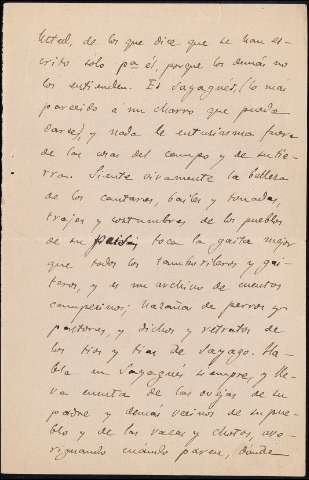 Usted, de los que dice que se han es-
crito solo pa él, porque los demás no
los entienden. Es Sayagués, (lo más
parecido á un charro que pueda
darse), y nada le entusiasma fuera
de las cosas del campo y de su tie-
rra. Siente vivamente la belleza
de los cantares, bailes y tonadas,
trajes y costumbres de los pueblos
de su toca la gaita mejor
que todos los tamborileros y gai-
teros, y es un archivo de cuentos
campesinos; hazañas de perros y
pastores, y dichos y retratos de
los tios y tias de Sayago. Ha-
bla en Sayagués siempre, y lle-
va cuenta de las ovejas de su
padre y demás vecinos de su pue-
blo y de las vacas y chotos, ave-
riguando cuándo paren, dónde